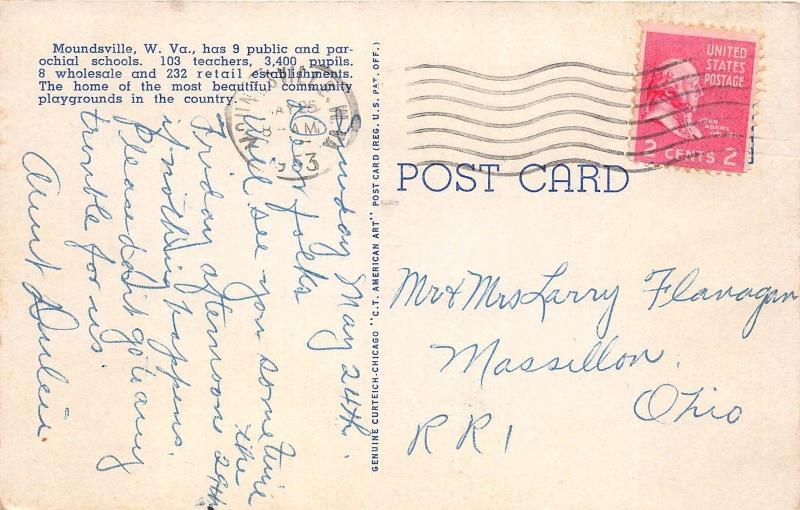 Moundsville, W. Va., has 9 public and par-
ochial schools. 103 teachers, 3,400 pupils.
8 wholesale and 232 retail establishments.
The home of the most beautiful community
playgrounds in the country.
MOUNDSVILLE, W. VA.
MAY 25
8 - AM
1953
UNITED
STATES
POSTAGE
JOHN
ADAMS
2 CENTS 2
POST CARD
GENUINE CURTEICH-CHICAGO "C.T. AMERICAN ART" POST CARD (REG. U.S. PAT. OFF.)
Sunday May 24th.
Dear folks
Will see you sometime
the
Friday afternoon 29th
if nothing happens.
Please don't go to any
trouble for us.
Aunt
Mr & Mrs Larry Flanagan
Massillon.
Ohio
RR1